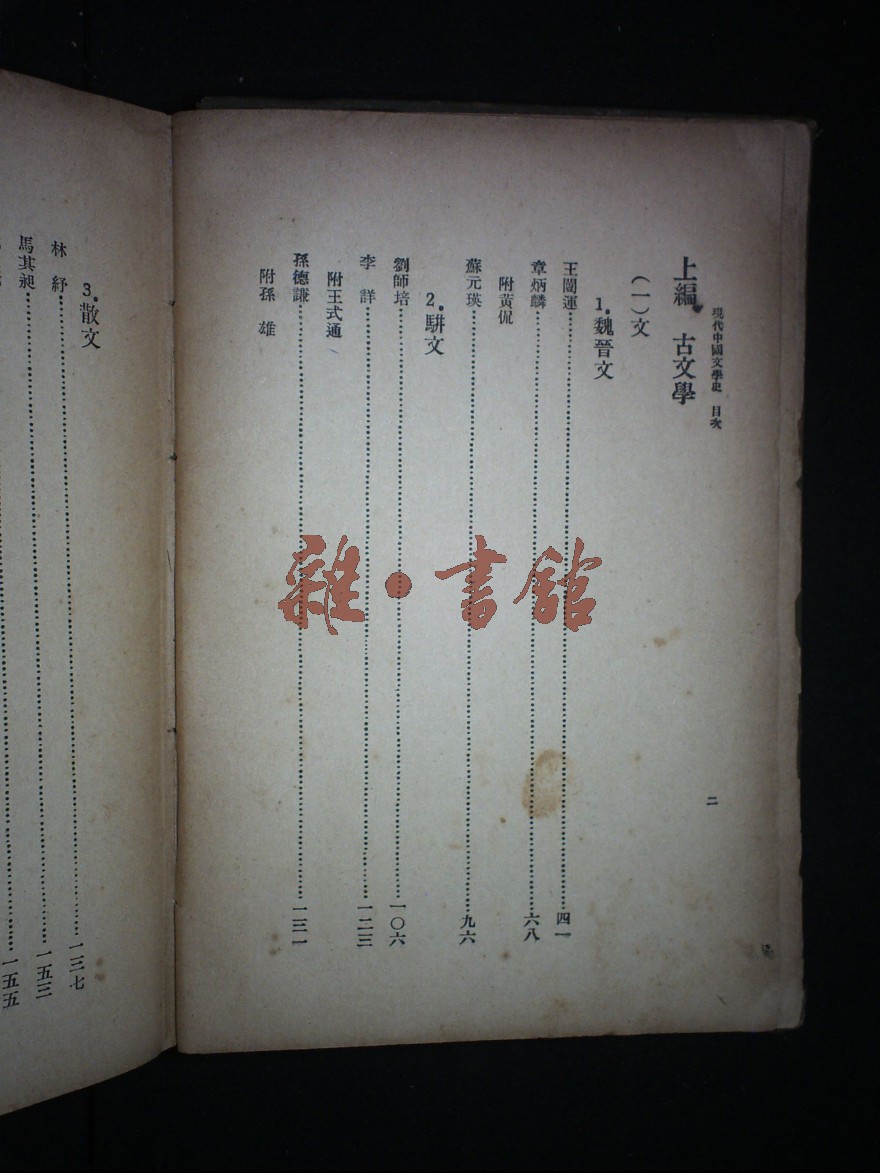 現代中國文學史 目次
二
上編 古文學
(一)文
1.魏晉文
王闓運……四一
章炳麟……六八
附黃侃
蘇元瑛……九六
2.駢文
劉師培……一〇六
李詳……一二三
附王式通
孫德謙……一三一
附孫雄
3.散文
林紓……一三七
馬其昶……一五三
一五五
雜·書館